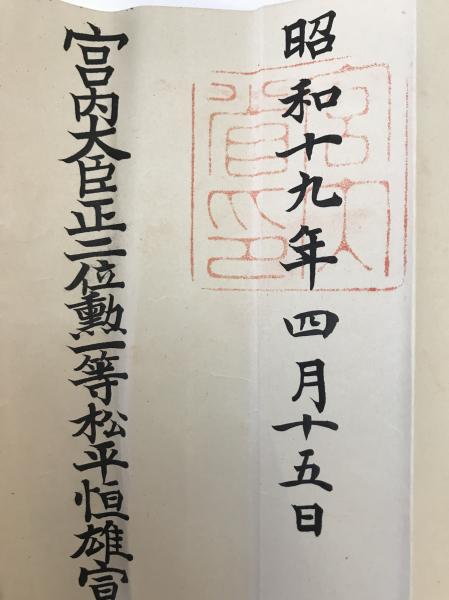 昭和十九年四月十五日
宮内省印
宮内大臣正二位勲一等松平恒雄宣